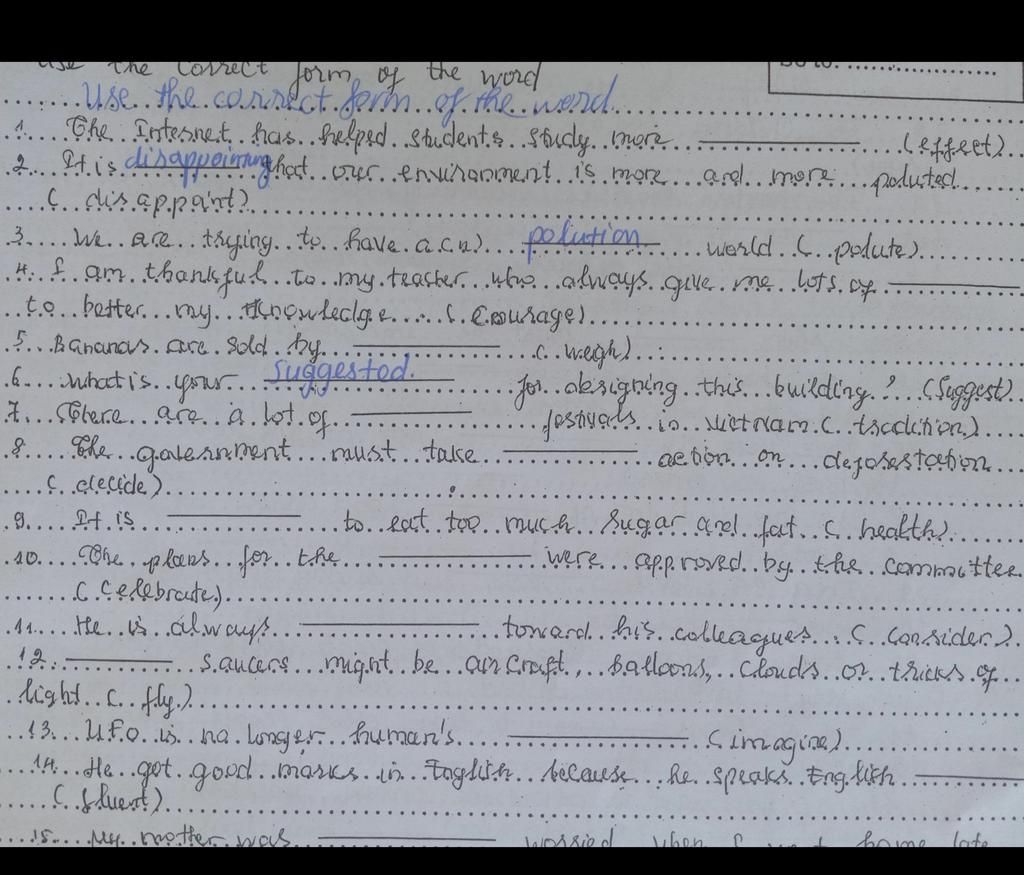 use the correct form of the word
Use the correct form of the word
1. The Internet has helped students study more (effect).
2. It is disappointing that our environment is more and more poluted
( disappoint)
3. We are trying to have a(n) polution world ( polute)
4. I am thankful to my teacher who always give me lots of
to better my knowledge ( courage)
5. Bananas are sold by ( weigh)
6. What is your suggested for designing this building? (suggest)
7. There are a lot of festivals in Vietnam ( tradition)
8. The government must take action on deforestation
( decide)
9. It is to eat too much sugar and fat ( health)
10. The plans for the were approved by the committee
( celebrate)
11. He is always toward his colleagues ( consider)
12. saucers might be aircraft, balloons, clouds or tricks of
light ( fly)
13. U.F.O is no longer human's (imagine)
14. He got good marks in English because he speaks English
( fluent)
15. My mother was worried when I home late